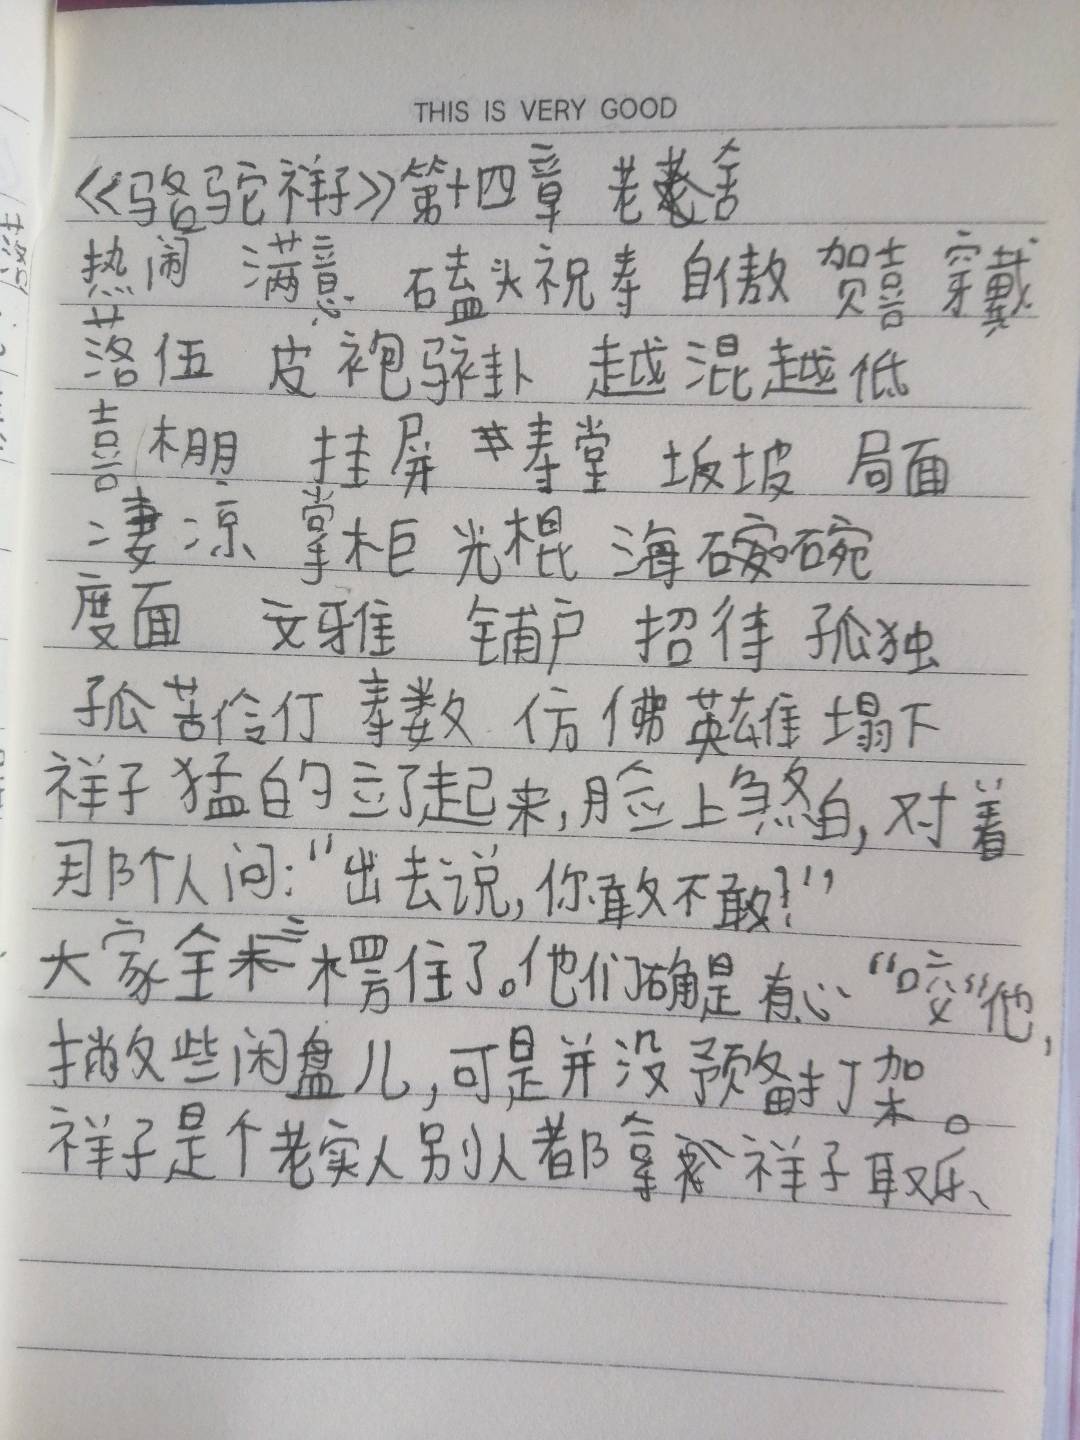 THIS IS VERY GOOD
《骆驼祥子》第十四章 老舍
热闹 满意 磕头祝寿 自傲 贺喜 穿戴
落伍 皮袍 越混越低
喜棚 挂屏 寿堂 坡 局面
凄凉 掌柜 光棍 海碗
度面 文雅 铺户 招待 孤独
孤苦伶仃 寿数 仿佛 英雄 塌下
祥子猛的立了起来,脸上煞白,对着
那个人问:“出去说,你敢不敢?”
大家全愣住了。他们确是有心“咬”他,
撇些闲盘儿,可是并没预备打架。
祥子是个老实人别人都拿祥子取乐、